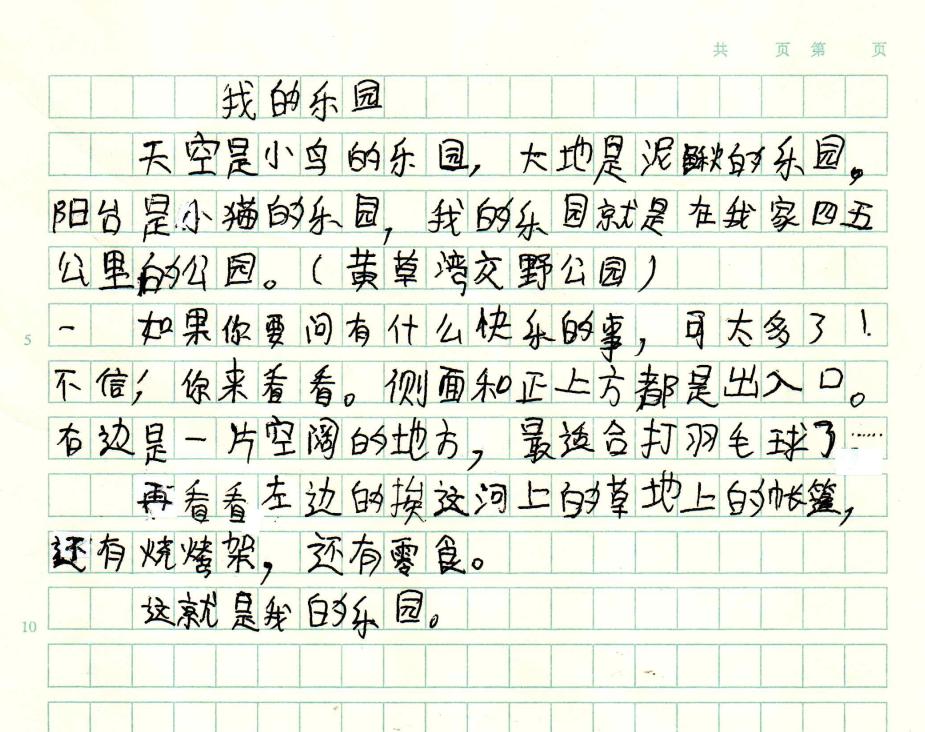 共 页 第 页
我的乐园
天空是小鸟的乐园，大地是泥鳅的乐园。
阳台是小猫的乐园，我的乐园就是在我家四五
公里的公园。（黄草湾交野公园）
一 如果你要问有什么快乐的事，可太多了！
5
不信，你来看看。侧面和正上方都是出入口。
右边是一片空阔的地方，最适合打羽毛球了……
再看看左边的挨这河上的草地上的帐篷，
还有烧烤架，还有零食。
这就是我的乐园。
10